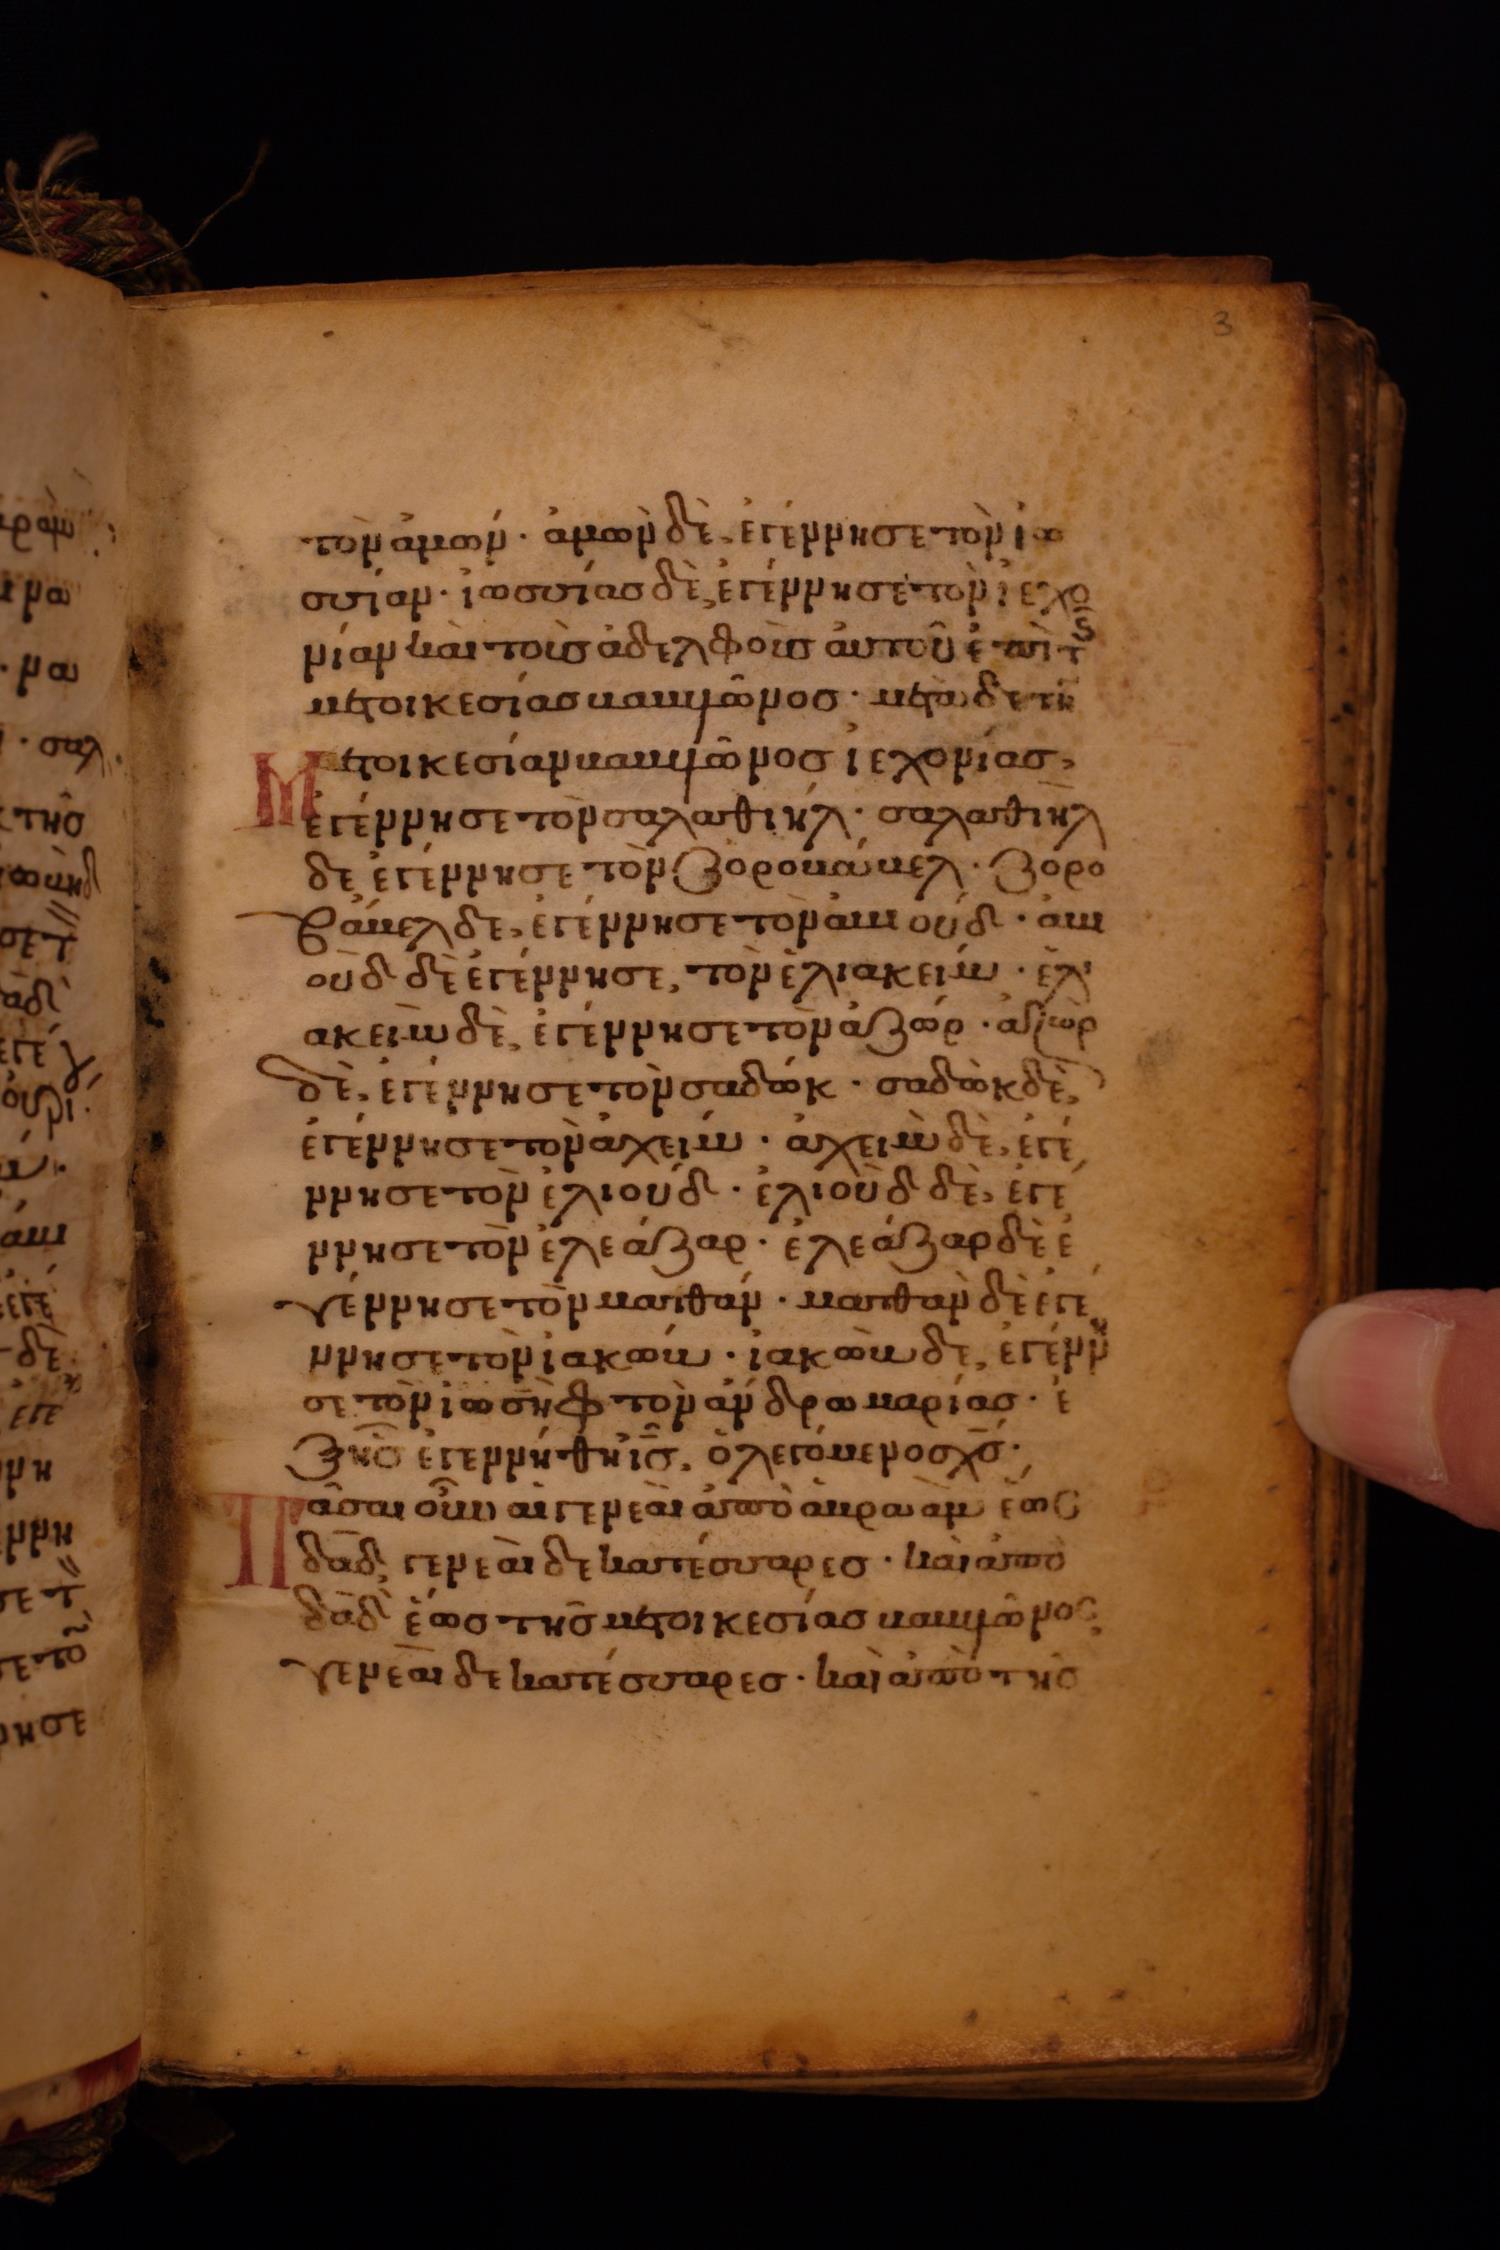 3
τὸν ἀμών · ἀμὼν δὲ, ἐγέννησε τὸν ἰω
σίαν · ἰωσίας δὲ, ἐγέννησε τὸν ἰεχο
νίαν καὶ τοὺς ἀδελφοὺς αὐτοῦ ἐπὶ τῆς
μετοικεσίας βαβυλῶνος · μετὰ δὲ τὴν
Μετοικεσίαν βαβυλῶνος ἰεχονίας,
ἐγέννησε τὸν σαλαθιήλ · σαλαθιὴλ
δὲ ἐγέννησε τὸν ζοροβάβελ · ζορο
βάβελ δὲ, ἐγέννησε τὸν ἀβιούδ · ἀβι
οὺδ δὲ ἐγέννησε, τὸν ἐλιακείμ · ἐλι
ακεὶμ δὲ, ἐγέννησε τὸν ἀζώρ · ἀζὼρ
δὲ, ἐγέννησε τὸν σαδώκ · σαδὼκ δὲ,
ἐγέννησε τὸν ἀχείμ · ἀχεὶμ δὲ, ἐγέ
ννησε τὸν ἐλιούδ · ἐλιοὺδ δὲ, ἐγέ
ννησε τὸν ἐλεάζαρ · ἐλεάζαρ δὲ ἐ
γέννησε τὸν ματθάν · ματθὰν δὲ ἐγέ
ννησε τὸν ἰακώβ · ἰακὼβ δὲ, ἐγέννη
σε τὸν ἰωσὴφ τὸν ἄνδρα μαρίας · ἐ
ξ ἧς ἐγεννήθη ι̅ς̅, ὁ λεγόμενος χ̅ς̅ ·
Πᾶσαι οὖν αἱ γενεαὶ ἀπὸ ἀβραὰμ ἕως
δ̅α̅δ̅, γενεαὶ δεκατέσσαρες · καὶ ἀπὸ
δ̅α̅δ̅ ἕως τῆς μετοικεσίας βαβυλῶνος,
γενεαὶ δεκατέσσαρες · καὶ ἀπὸ τῆς